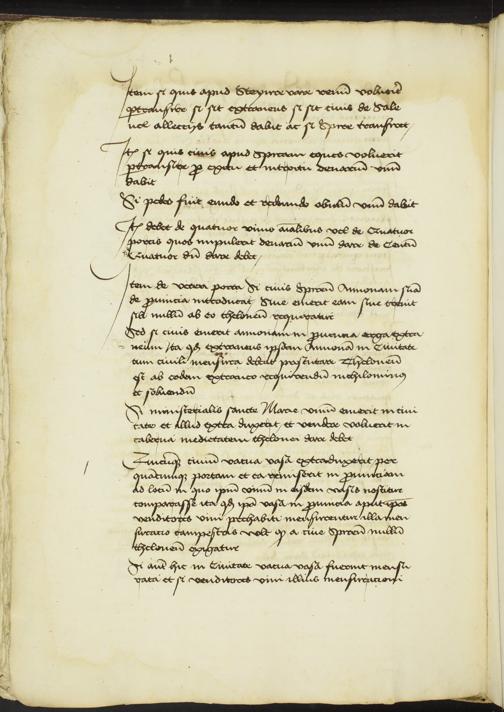 Item si quis apud Steynvor vare venire voluerit
pertransire si sit extraneus si sit civis de Sale
vel allectijs tantum dabit ac si Spire transiret
Item si quis civis apud Spiream eques voluerit
pertransire pro exitu et introitu denarium unum
dabit
Si pedes fuit eundo et redeundo obulum unum dabit
Item debet de quatuor vivis animalibus vel de Quatuor
porcis quos impulerit denarium unum dare de Centum
Quatuor dare debet
Item de Vetera porta Si civis Spirensis Annonam suam
de provincia introducat Sive emerit eam sive
sibi nullum ab eo theloneum requiratur
Sed si civis emerit annonam in provincia erga extra
neum ita quod extraneus ipsam Annonam in Civitate
cum civili mensura debeat Theloneum
est ab eodem extraneo requirendum nichilominus
et solvendum
Si ministerialis sancte Marie vinum emerit in civi
tate et illud extra duxerit et vendere voluerit in
taberna medietatem thelonei dare debet
Quicunque civium vacua vasa extraduxerit per
quamcunque portam et ea in provinciam
ad locum in quo ipsum vinum in eisdem vasis
comparasse ita quod ipsa vasa in provincia apud ipsos
venditores vini prehabiti mensurentur illa men
suratio campestris volt quod a cive Spirensi nullum
theloneum exigatur
Si autem hic in Civitate vacua vasa fuerint mensu
rata et si venditores vini illius mensurationi